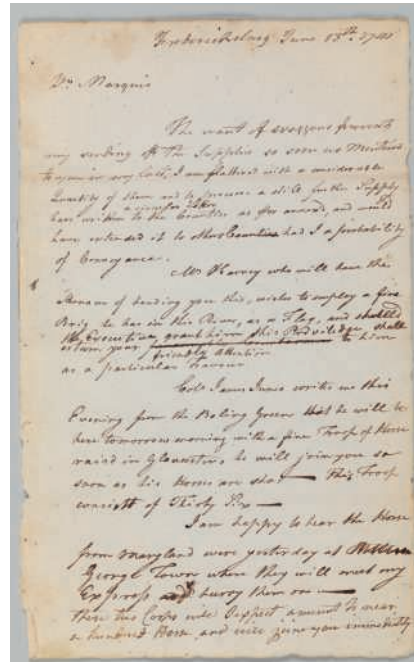 Fredericksburg June 13th 1781
Dr Marquis
The want of waggons prevents
my sending off the Supplies so soon as Mentioned
to you in my last, I am flattered with a considerable
Quantity of them and to procure a still further Supply
have written to the Counties as far around, and would
have extended it to other Counties had I a probability
of Conveyance.
Mr Harvey who will have the
Honour of handing you this, wishes to employ a fine
Brig, he has in this River, as a Flag, and should
the Executive grant him this Priviledge, shall
esteem your to him
friendly Attention
as a particular favour
Colo James Innis writes me this
Evening from the Boling Green that he will be
here tomorrow morning with a fine Troop of Horse
raised in Gloucester, he will join you so
soon as his Horses are shod — this Troop
consists of Thirty Six —
I am happy to hear the Horse
from Maryland were yesterday at
George Town where they will meet my
Express and hurry them on —
these two Corps will I expect amount to near
a hundred Horse and will join you immediately